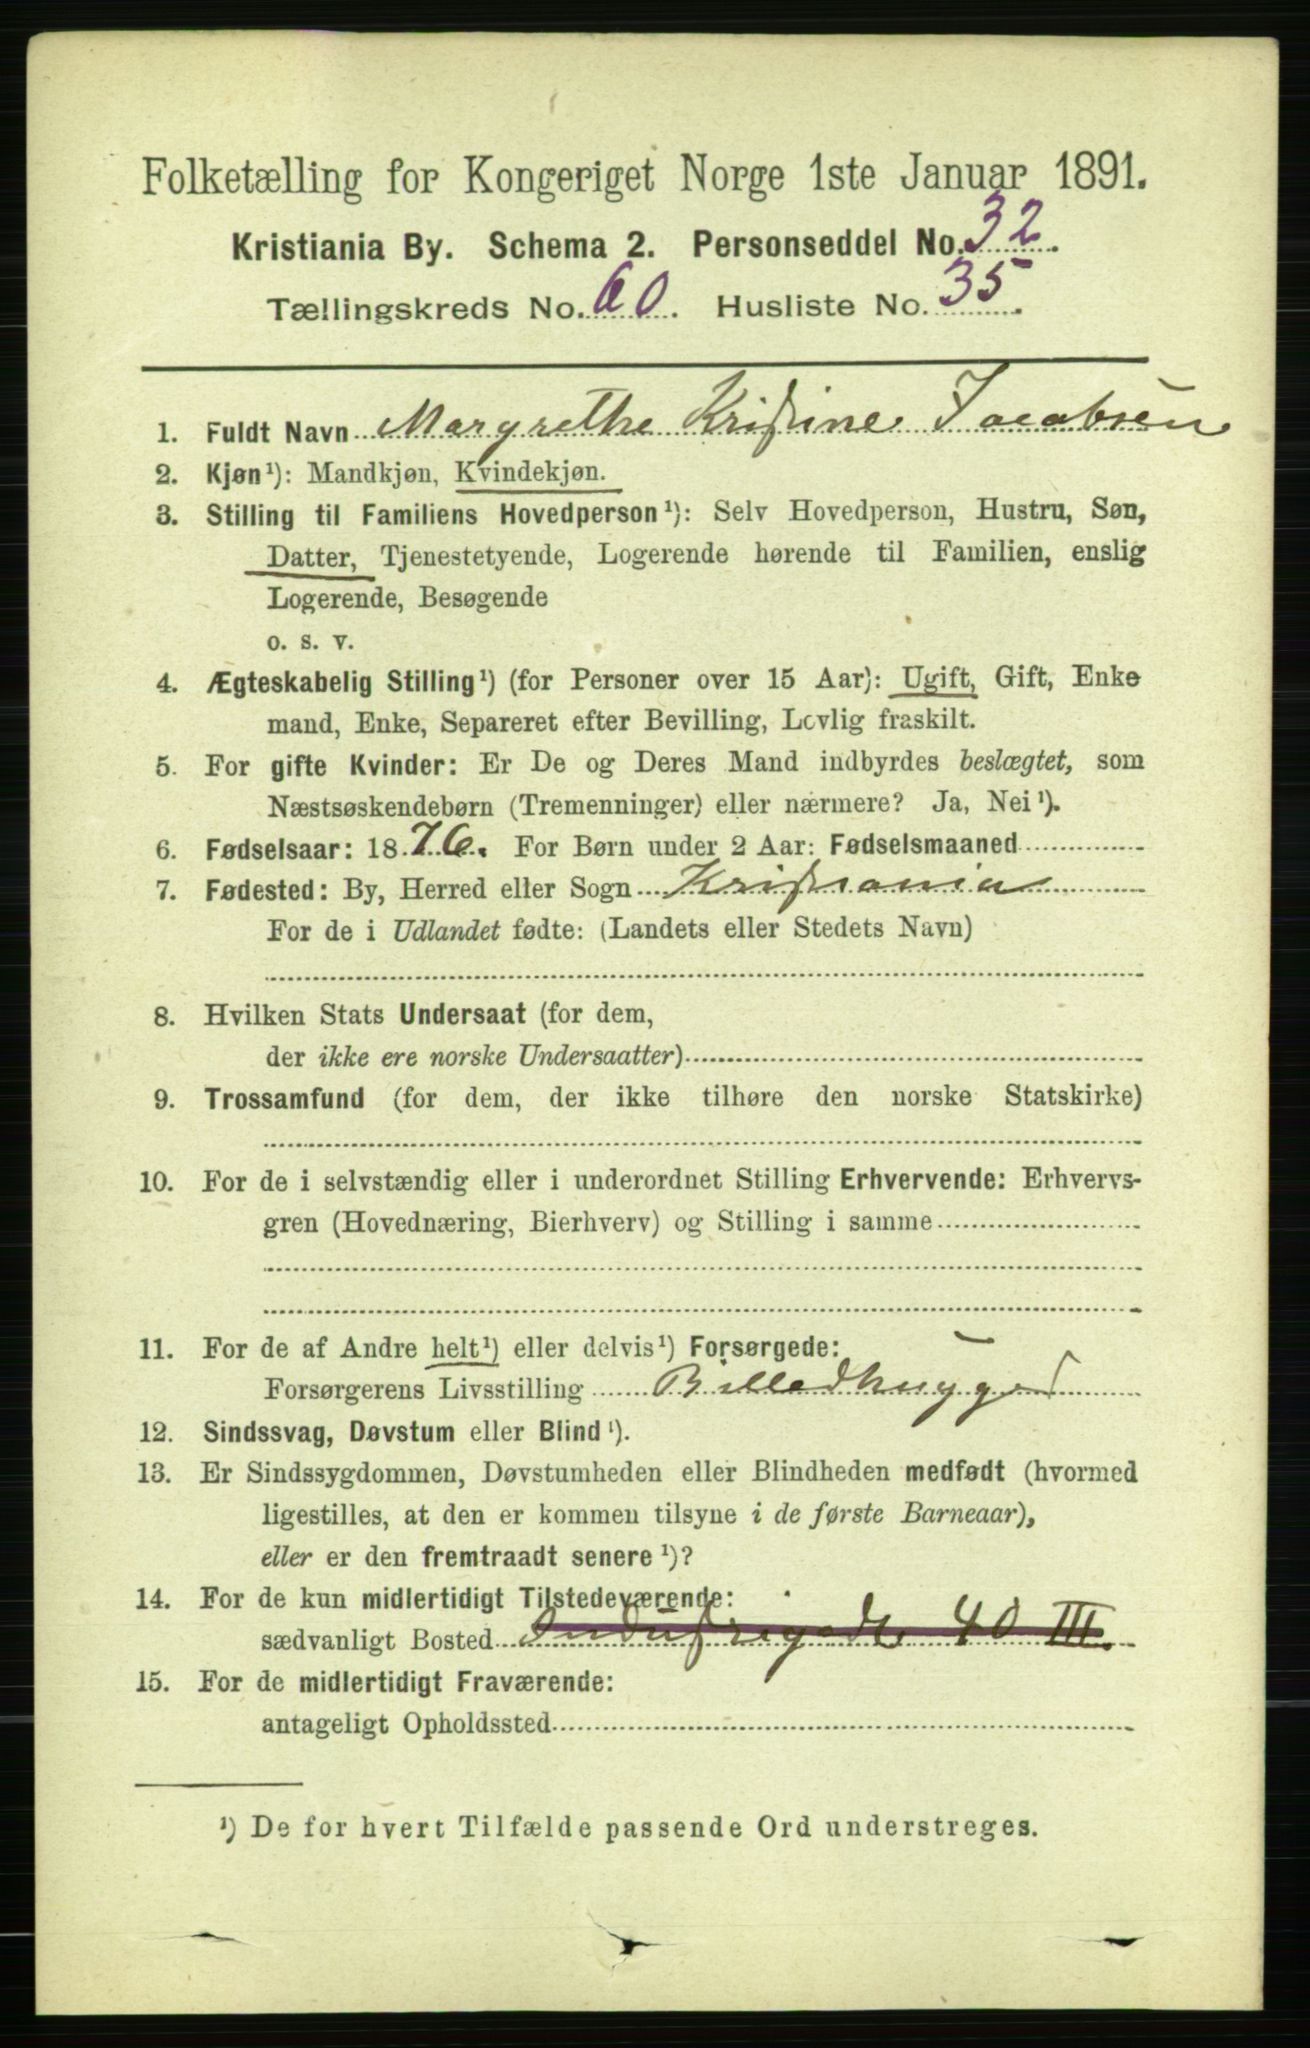 Folketælling for Kongeriget Norge 1ste Januar 1891.
Kristiania By. Schema 2. Personseddel No. 32.
Tællingskreds No. 60. Husliste No. 35.
1. Fuldt Navn Margrethe Kristine Jacobsen
2. Kjøn¹): Mandkjøn, Kvindekjøn.
3. Stilling til Familiens Hovedperson¹): Selv Hovedperson, Hustru, Søn,
Datter, Tjenestetyende, Logerende hørende til Familien, enslig
Logerende, Besøgende
o. s. v.
4. Ægteskabelig Stilling¹) (for Personer over 15 Aar): Ugift, Gift, Enke
mand, Enke, Separeret efter Bevilling, Lovlig fraskilt.
5. For gifte Kvinder: Er De og Deres Mand indbyrdes beslægtet, som
Næstsøskendebørn (Tremenninger) eller nærmere? Ja, Nei¹).
6. Fødselsaar: 1876. For Børn under 2 Aar: Fødselsmaaned
7. Fødested: By, Herred eller Sogn Kristiania
For de i Udlandet fødte: (Landets eller Stedets Navn)
8. Hvilken Stats Undersaat (for dem,
der ikke ere norske Undersaatter)
9. Trossamfund (for dem, der ikke tilhøre den norske Statskirke)
10. For de i selvstændig eller i underordnet Stilling Erhvervende: Erhvervs-
gren (Hovednæring, Bierhverv) og Stilling i samme
11. For de af Andre helt¹) eller delvis¹) Forsørgede:
Forsørgerens Livsstilling Billedhugger
12. Sindssvag, Døvstum eller Blind¹).
13. Er Sindssygdommen, Døvstumheden eller Blindheden medfødt (hvormed
ligestilles, at den er kommen tilsyne i de første Barneaar),
eller er den fremtraadt senere¹)?
14. For de kun midlertidigt Tilstedeværende:
sædvanligt Bosted Industrigade 40 III.
15. For de midlertidigt Fraværende:
antageligt Opholdssted
¹) De for hvert Tilfælde passende Ord understreges.